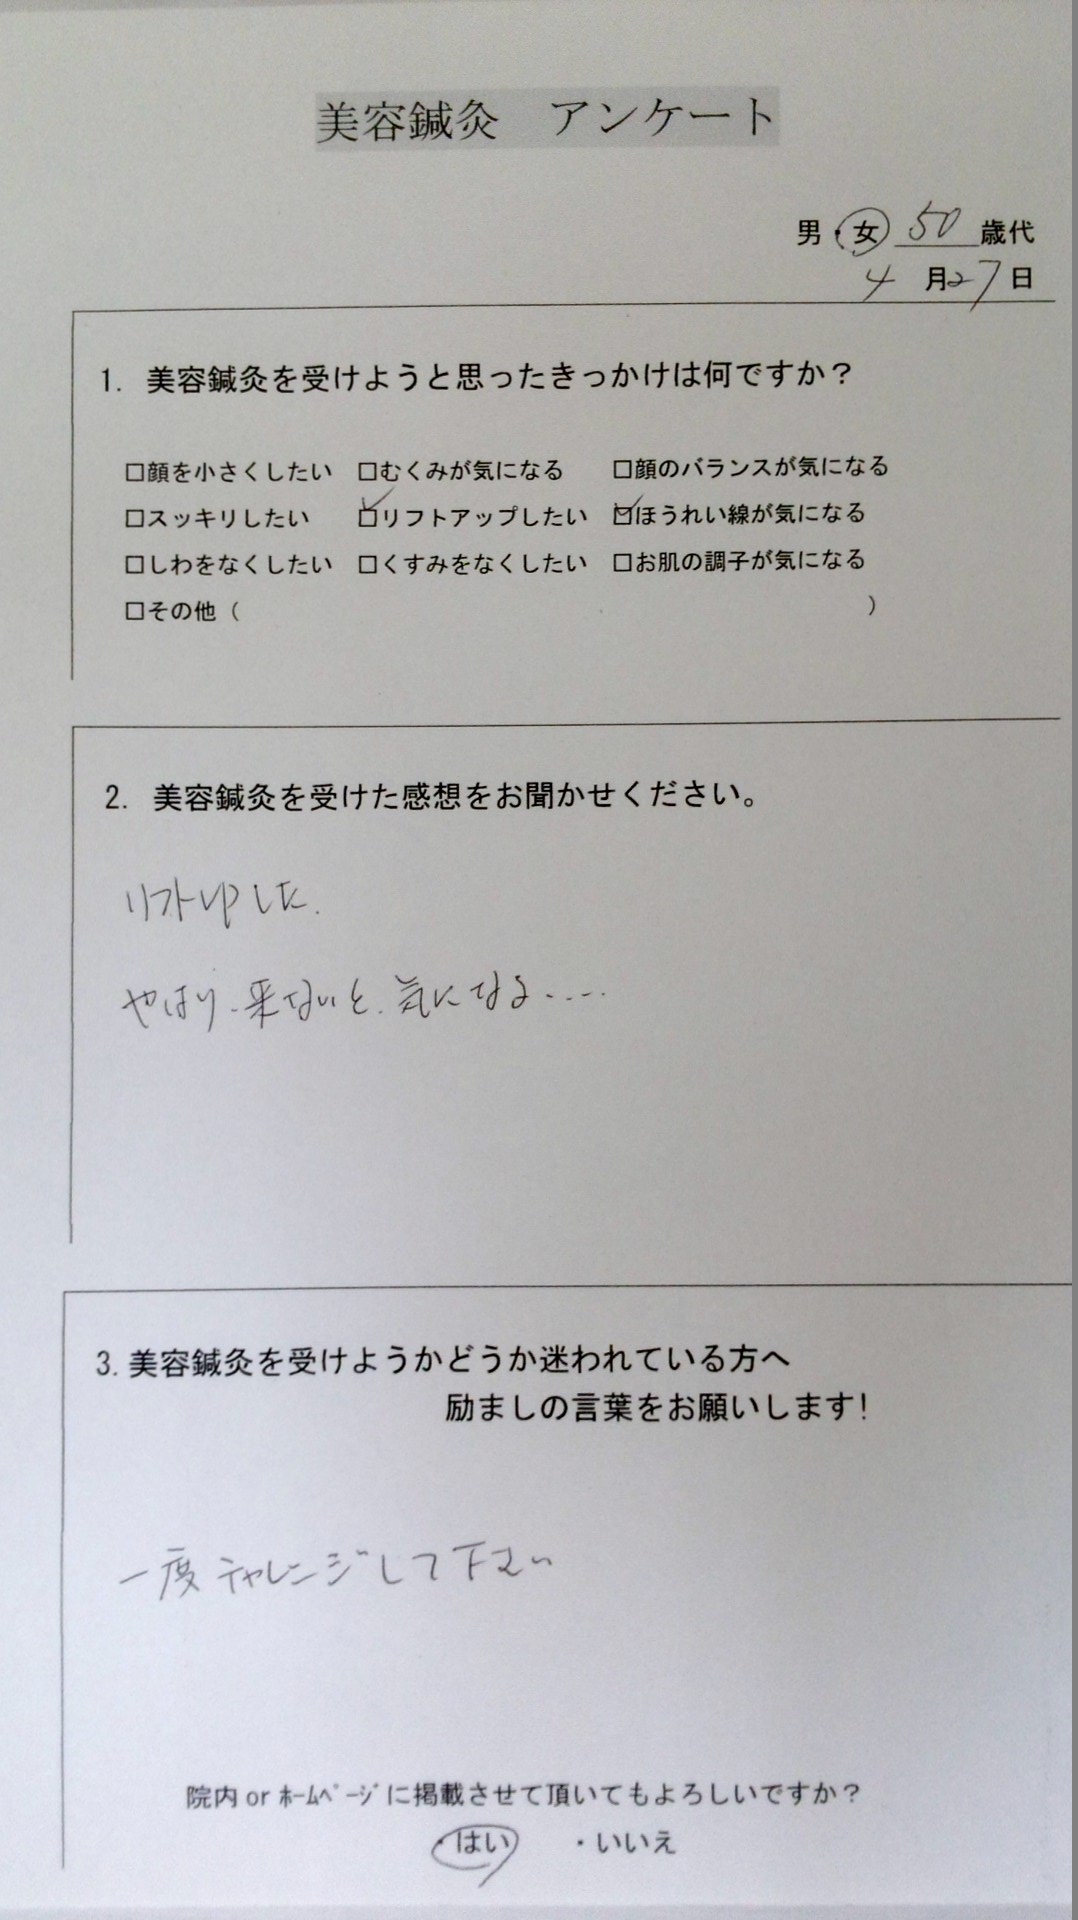 美容鍼灸 アンケート
男・女 50 歳代
4 月27日
1. 美容鍼灸を受けようと思ったきっかけは何ですか?
□顔を小さくしたい □むくみが気になる □顔のバランスが気になる
□スッキリしたい ☑リフトアップしたい ☑ほうれい線が気になる
□しわをなくしたい □くすみをなくしたい □お肌の調子が気になる
□その他( )
2. 美容鍼灸を受けた感想をお聞かせください。
リフトUPした.
やはり.来ないと.気になる.....
3.美容鍼灸を受けようかどうか迷われている方へ
励ましの言葉をお願いします!
一度チャレンジして下さい
院内orホームページに掲載させて頂いてもよろしいですか?
・はい ・いいえ